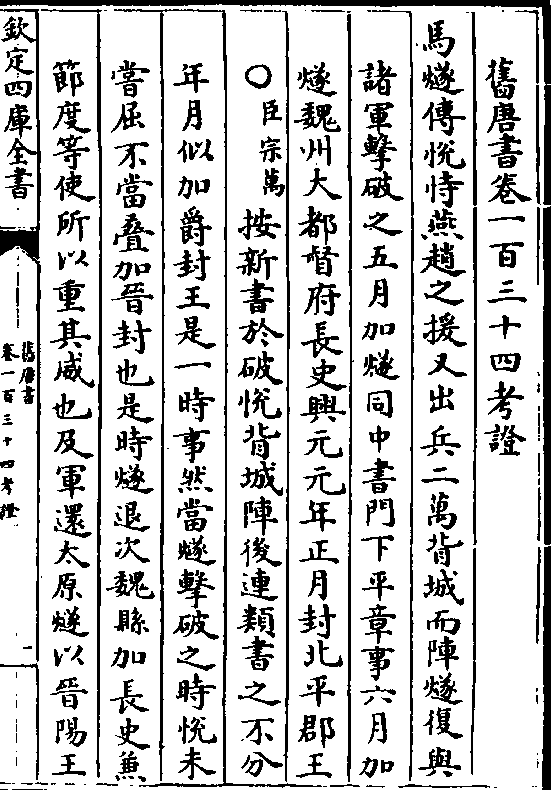 舊唐書卷一百三十四考證
馬燧傳悅恃燕趙之援又出兵二萬背城而陣燧復與
諸軍擊破之五月加燧同中書門下平章事六月加
燧魏州大都督府長史興元元年正月封北平郡王
○臣宗萬按新書於破悅背城陣後連類書之不分
年月似加爵封王是一時事然當燧擊破之時悅未
嘗屈不當疊加晉封也是時燧退次魏縣加長史兼
節度等使所以重其威也及軍還太原燧以晉陽王
欽定四庫全書
舊唐書
卷一百三十四考證
一